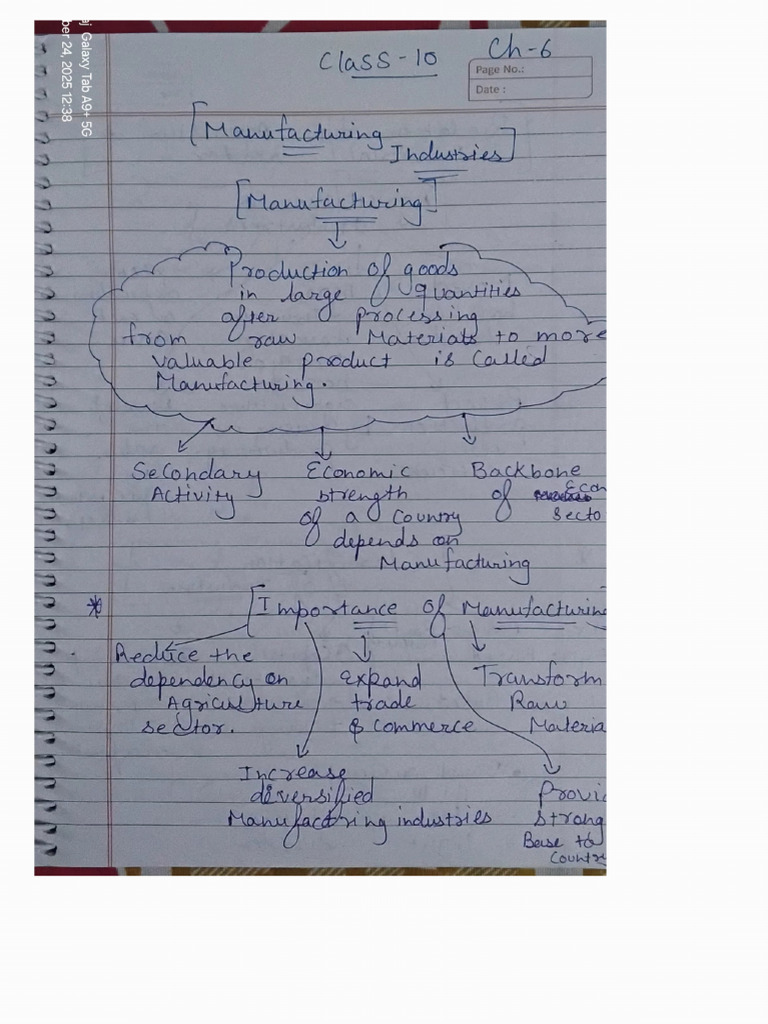 aj Galaxy Tab A9+ 5G
ber 24, 2025 12:38
Class-10 Ch-6
Page No.:
Date :
[Manufacturing
Industries]
[Manufacturing]
Production of goods
in large quantities
after processing
from raw Materials to more
valuable product is Called
Manufacturing.
Secondary
Activity
Economic
strength
of a Country
depends on
Manufacturing
Backbone
of Econ
Secto
* [Importance of Manufacturing
Reduce the
dependency on
Agriculture
sector.
Expand
trade
& Commerce
Transform
Raw
Materia
Increase
diversified
Manufactring industries
Provi
strong
Base to
Countr